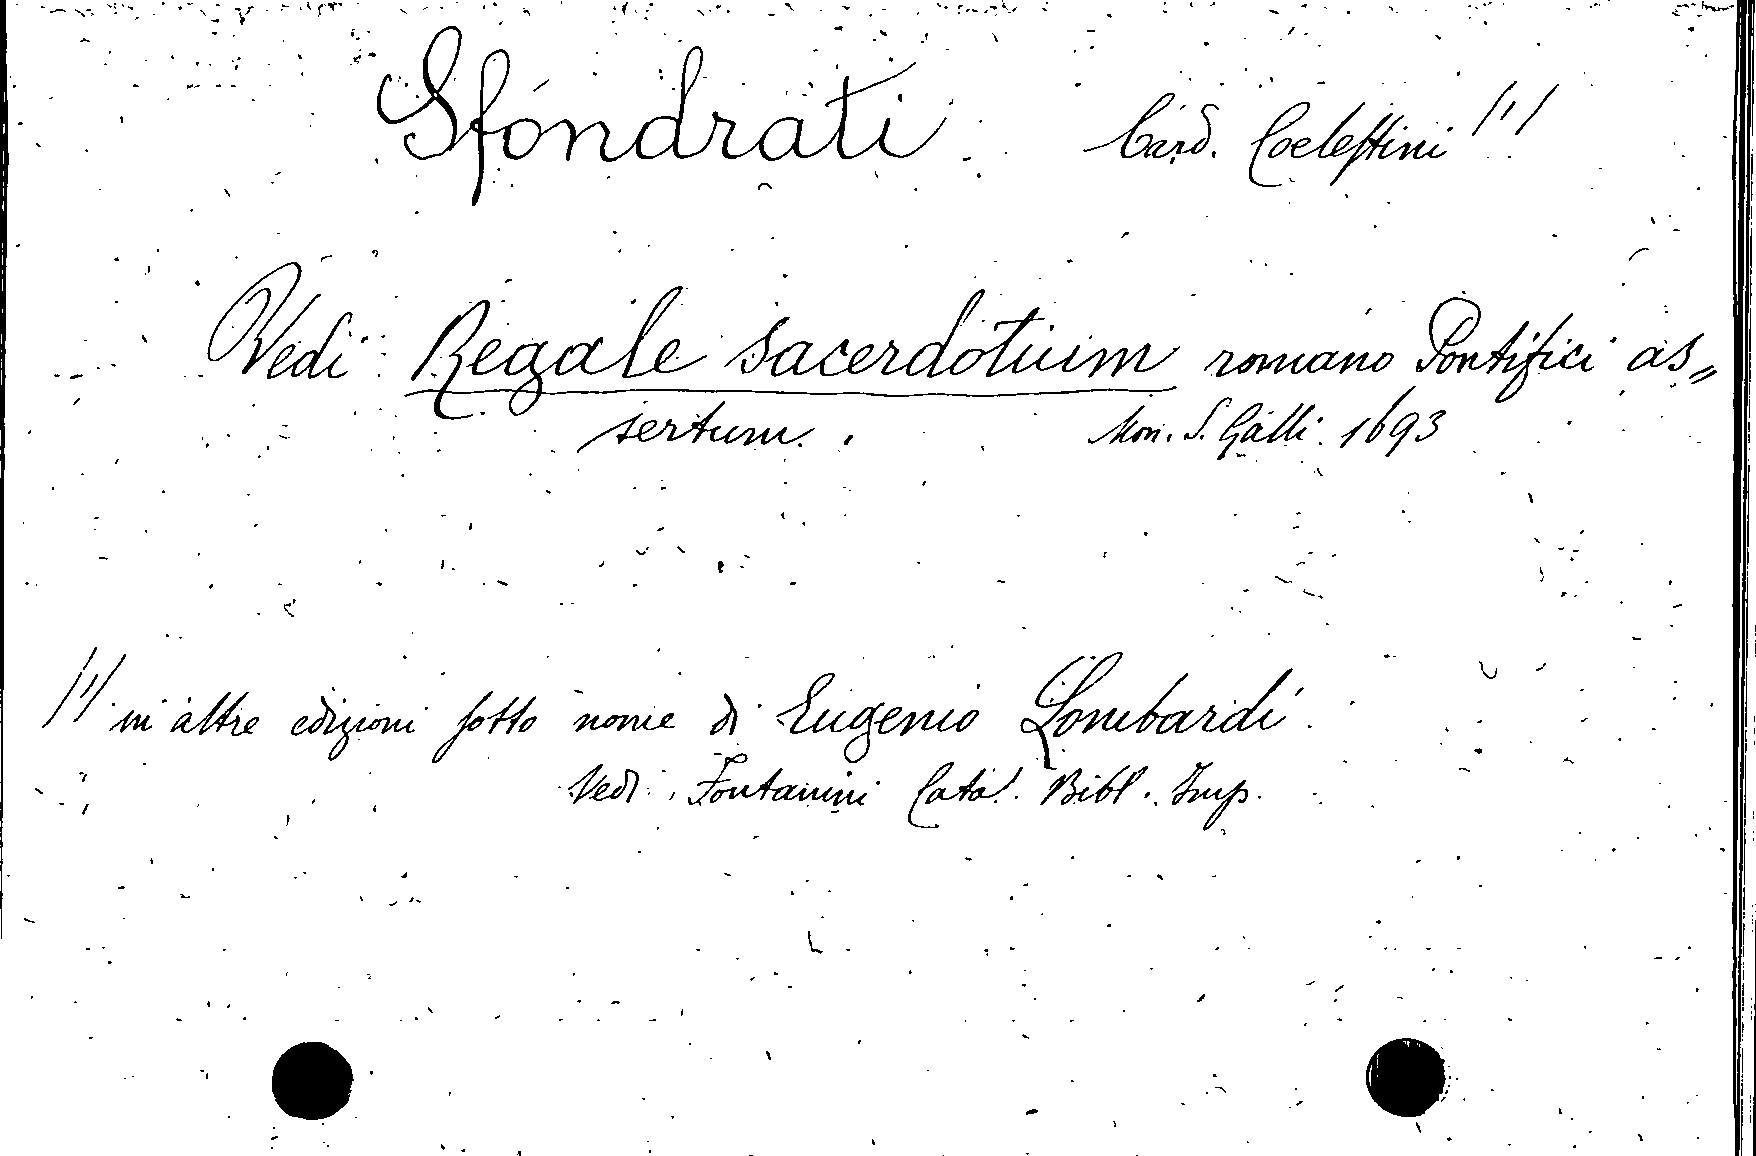 Sfondrati Card. Coelestini /1/
Vedi Regale sacerdotium romano Pontifici as=
sertum. Mon. S. Galli. 1693
/1/ in altre edizioni sotto nome di Eugenio Lombardi
Vedi Fontanini Catal. Bibl. Imp.